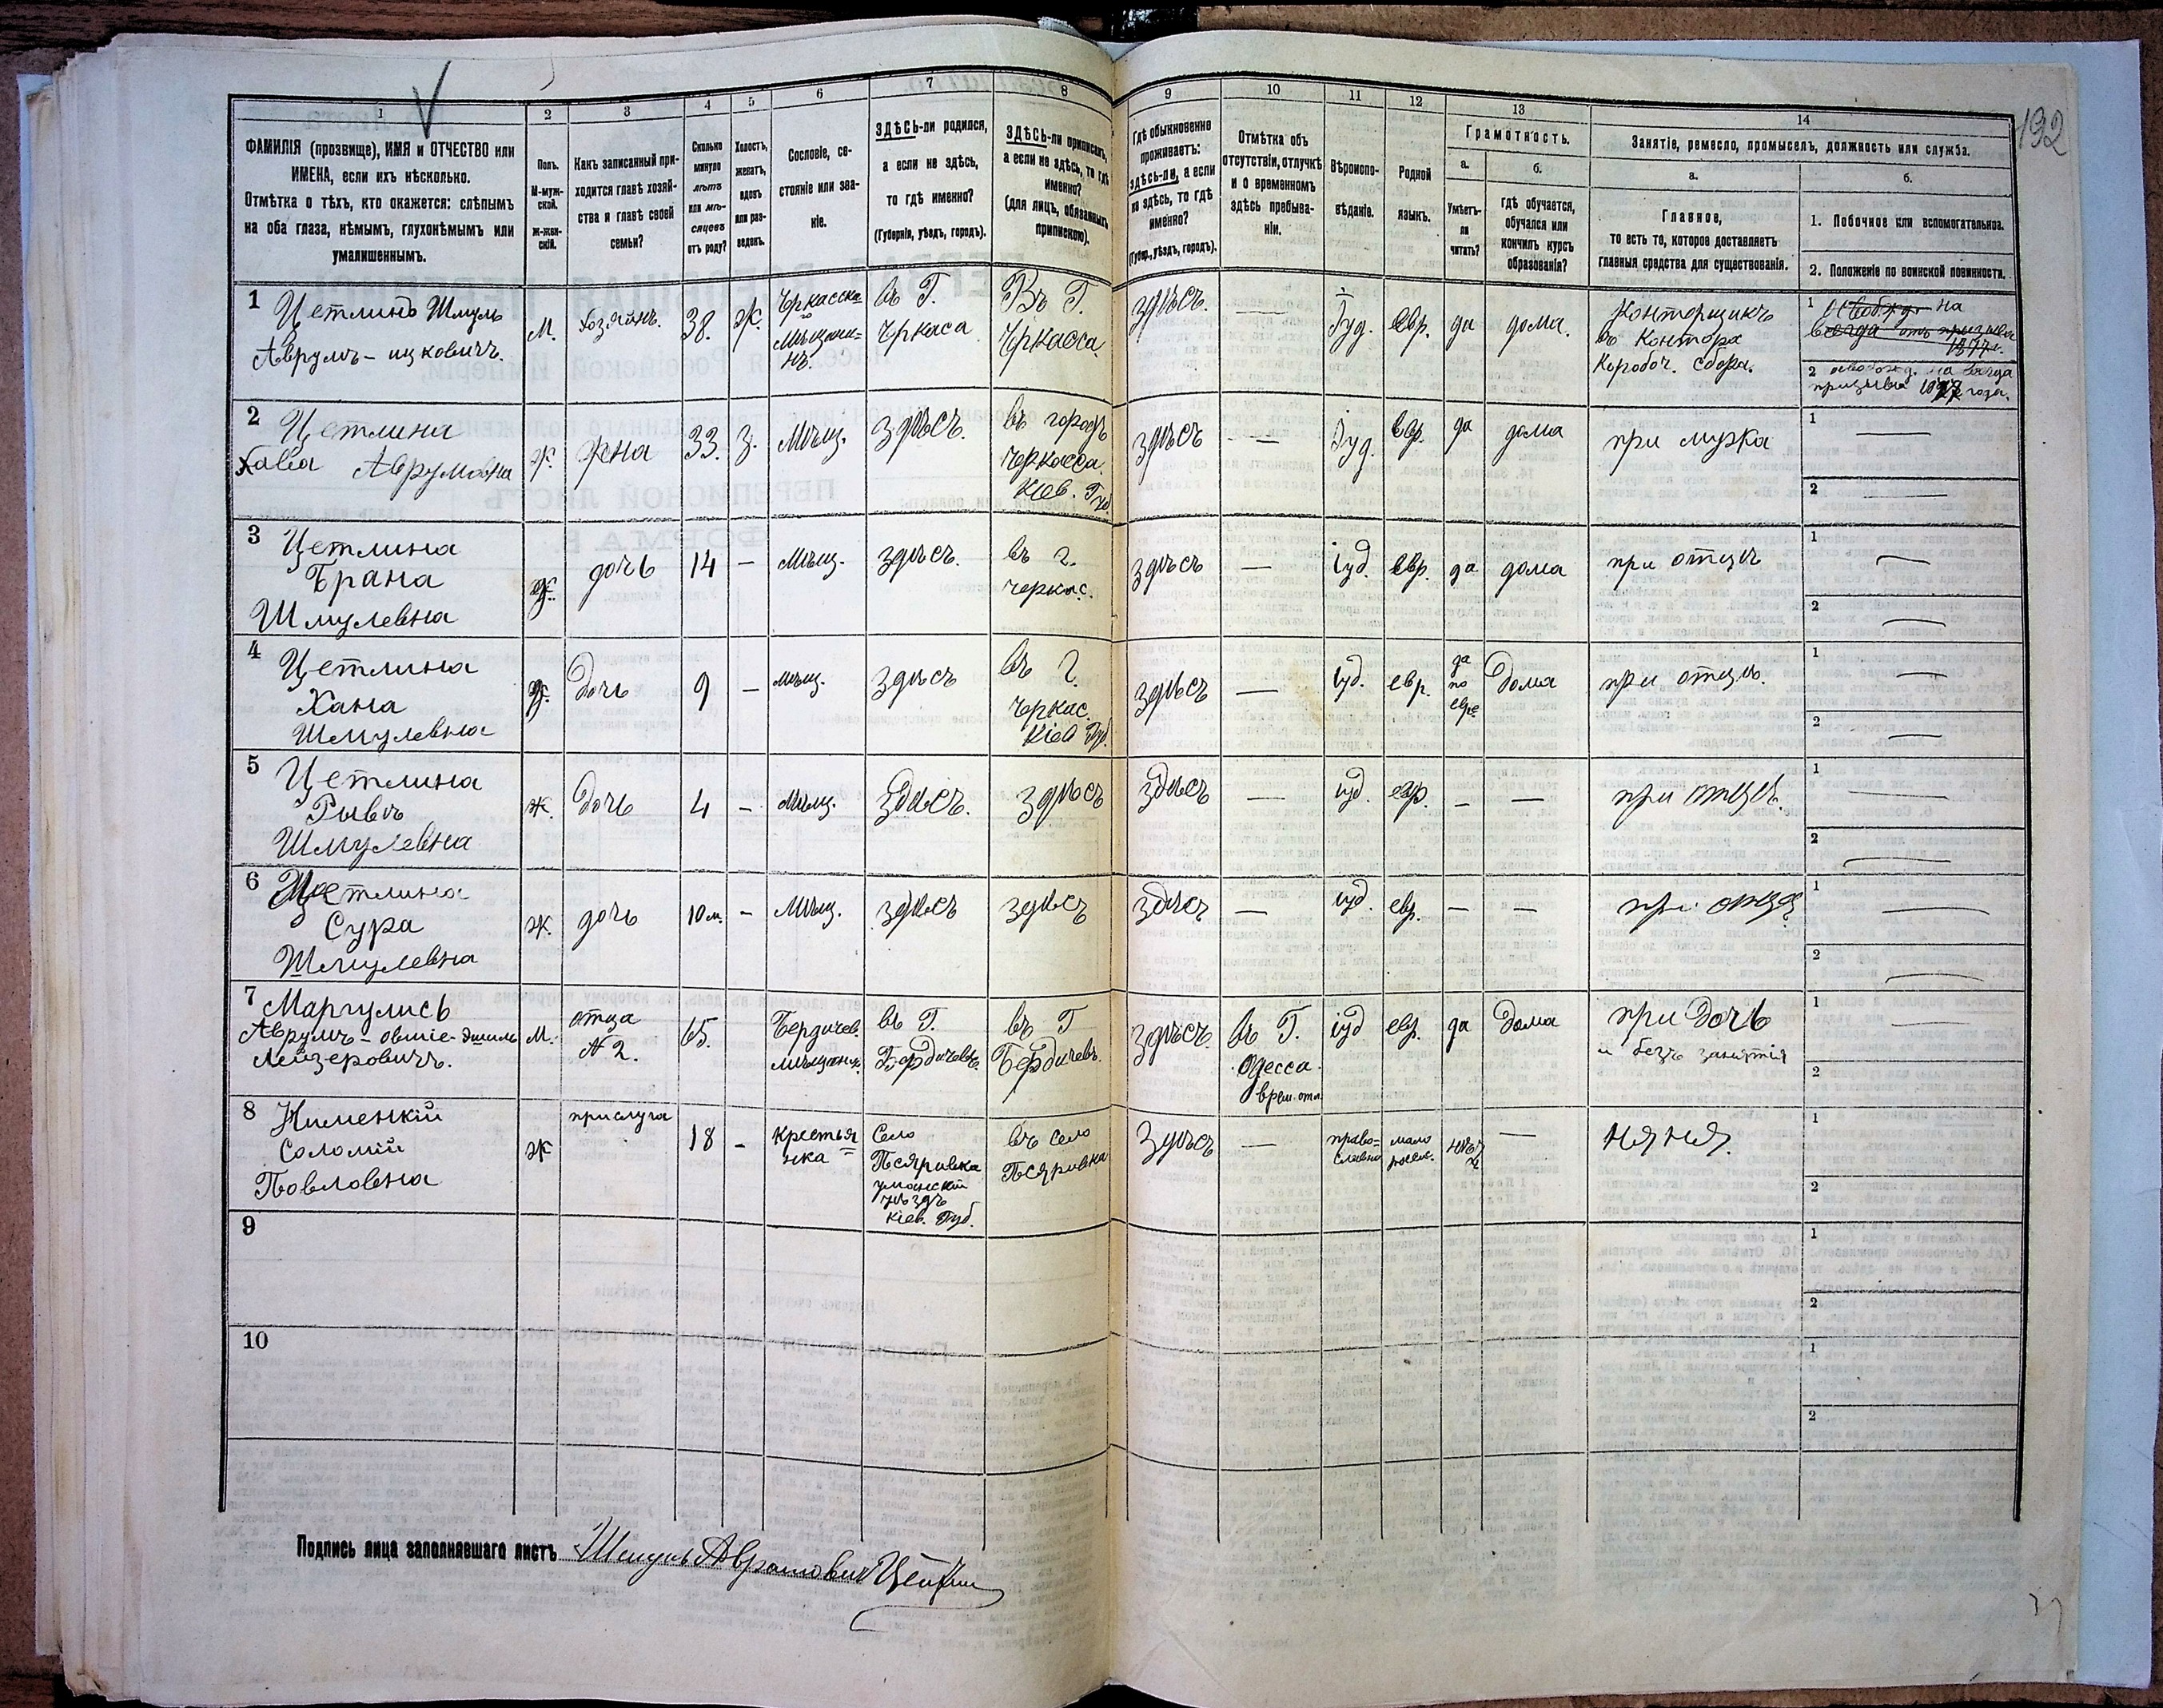 192
1
2
3
4
5
6
7
8
9
10
11
12
13
14
ФАМИЛІЯ (прозвище), ИМЯ и ОТЧЕСТВО или
ИМЕНА, если ихъ нѣсколько.
Отмѣтка о тѣхъ, кто окажется: слѣпымъ
на оба глаза, нѣмымъ, глухонѣмымъ или
умалишеннымъ.
Полъ.
М-муж-
ской.
Ж-жен-
скій.
Какъ записанный при-
ходится главѣ хозяй-
ства и главѣ своей
семьи?
Сколько
минуло
лѣтъ
или мѣ-
сяцевъ
отъ роду?
Холостъ,
женатъ,
вдовъ
или раз-
веденъ.
Сословіе, со-
стояніе или зва-
ніе.
ЗДѢСЬ-ли родился,
а если не здѣсь,
то гдѣ именно?
(Губернія, уѣздъ, городъ).
ЗДѢСЬ-ли приписанъ,
а если не здѣсь, то гдѣ
именно?
(для лицъ, обязанныхъ
припискою).
Гдѣ обыкновенно
проживаетъ:
здѣсь-ли, а если
не здѣсь, то гдѣ
именно?
(Губер., уѣздъ, городъ).
Отмѣтка объ
отсутствіи, отлучкѣ
и о временномъ
здѣсь пребыва-
ніи.
Вѣроиспо-
вѣданіе.
Родной
языкъ.
Грамотность.
а.
б.
Умѣетъ-
ли
читать?
гдѣ обучается,
обучался или
кончилъ курсъ
образованія?
Занятіе, ремесло, промыселъ, должность или служба.
а.
б.
Главное,
то есть то, которое доставляетъ
главныя средства для существованія.
1. Побочное или вспомогательное.
2. Положеніе по воинской повинности.
1 Цетлинъ Шмуль
Аврумъ-ицковичъ.
М.
хозяинъ.
38.
Ж.
Черкасск.
Мѣщани-
нъ.
въ Г.
Черкаса
Въ Г.
Черкасса.
здѣсь.
—
Іуд.
евр.
да
дома.
Конторщикъ
въ Контора
Коробоч. сбора.
1
2 освобожд. на всегда
призыва года.
2 Цетлина
Хавіа Аврумовна
Ж.
жена
33.
З.
Мѣщ.
здѣсь.
въ городѣ
Черкасса.
Кіев. Губ.
здѣсь
—
Іуд.
евр.
да
дома
при мужа
1 —
2 —
3 Цетлина
Брана
Шмулевна
Ж.
дочь
14
—
Мѣщ.
здѣсь.
въ г.
черкас.
здѣсь
—
іуд.
евр.
да
дома
при отцѣ
1 —
2 —
4 Цетлина
Хана
Шмулевна
Ж.
Дочь
9
—
мѣщ.
здѣсь
въ г.
Черкас.
Кіев Губ.
здѣсь
—
іуд.
евр.
да
по
евре
Дома
при отцѣ.
1 —
2 —
5 Цетлина
Рывъ
Шмулевна
ж.
Дочь
4
—
Мѣщ.
Здѣсь.
здѣсь
здѣсь
—
іуд.
евр.
—
—
при отцѣ.
1 —
2 —
6 Цетлина
Сура
Шмулевна
ж.
дочь
10 м.
—
Мѣщ.
здѣсь
здѣсь
здѣсь
—
іуд.
евр.
—
—
при отцѣ
1 —
2 —
7 Маргулисъ
Аврумъ-
Лейзеровичъ.
М.
отца
№ 2.
65.
Бердичев.
мѣщанин.
въ Г.
Бердичевъ.
въ Г
Бердичевъ.
здѣсь.
въ Г.
Одесса.
врем. отл.
іуд
евр.
да
Дома
при Дочь
и безъ занятія
1 —
2
8
Соломій
Повловна
Ж
прислуга
18
—
крестья
нка
Село
Псяровка
уманскій
уѣздъ
Кіев. Губ.
въ село
Псяровка
Здѣсь
—
право=
славна
мало
россій.
нѣтъ
—
няня.
1
2
9
1
2
10
1
2
Подпись лица заполнявшаго листъ Шмуль Аврамовичъ Цетлин